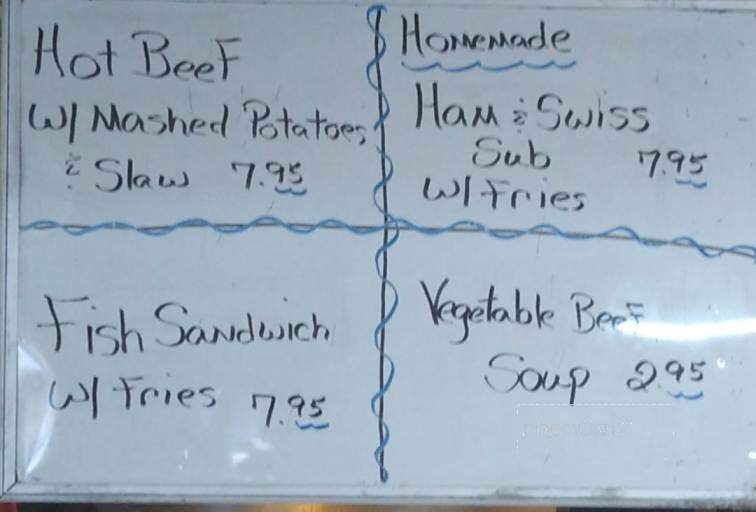 Hot Beef
W/ Mashed Potatoes
& Slaw 7.95
Homemade
Ham & Swiss
Sub 7.95
W/ Fries
Fish Sandwich
W/ Fries 7.95
Vegetable Beef
Soup 2.95